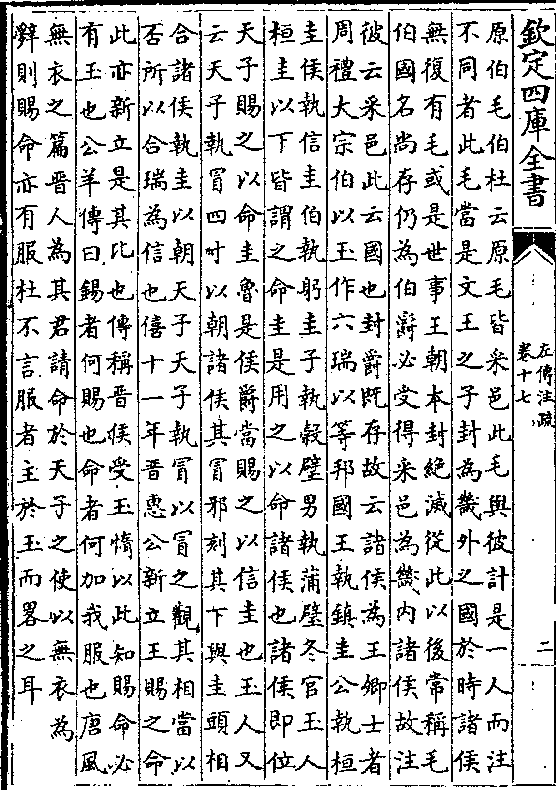 欽定四庫全書
左傳注疏
卷十七
二
原伯毛伯杜云原毛皆采邑此毛與彼計是一人而注
不同者此毛當是文王之子封為畿外之國於時諸侯
無復有毛或是世事王朝本封絶滅從此以後常稱毛
伯國名尚存仍為伯爵必受得采邑為畿内諸侯故注
彼云采邑此云國也封爵既存故云諸侯為王卿士者
周禮大宗伯以玉作六瑞以等邦國王執鎮圭公執桓
圭侯執信圭伯執躬圭子執穀璧男執蒲璧冬官玉人
桓圭以下皆謂之命圭是用之以命諸侯也諸侯即位
天子賜之以命圭魯是侯爵當賜之以信圭也玉人又
云天子執冒四寸以朝諸侯其冒邪刻其下與圭頭相
合諸侯執圭以朝天子天子執冒以冒之觀其相當以
否所以合瑞為信也僖十一年晋惠公新立王賜之命
此亦新立是其比也傳稱晋侯受玉惰以此知賜命必
有玉也公羊傳曰錫者何賜也命者何加我服也唐風
無衣之篇晋人為其君請命於天子之使以無衣為
辭則賜命亦有服杜不言服者主於玉而畧之耳